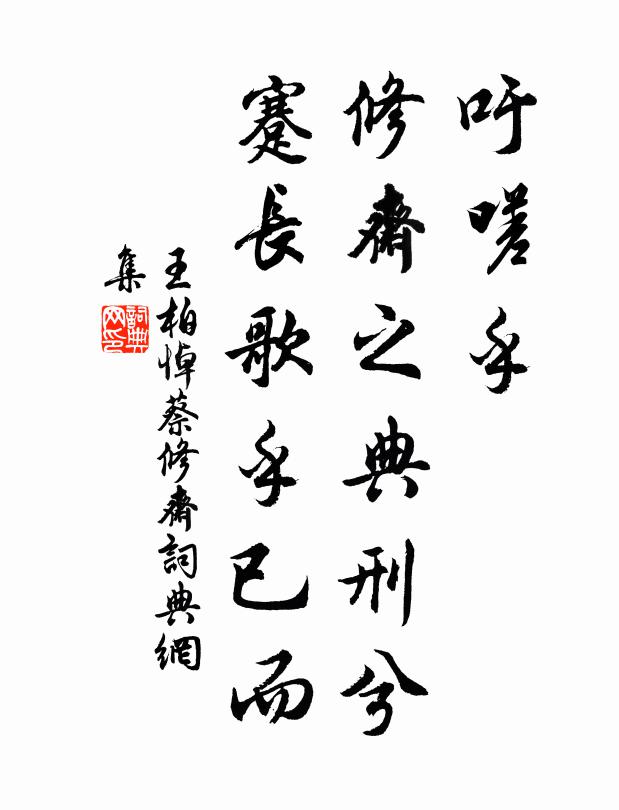 吁嗟乎
修齋之典刑兮
蹇長歌乎已而
王柏悼蔡修齋詞典網
集
詞典
网印